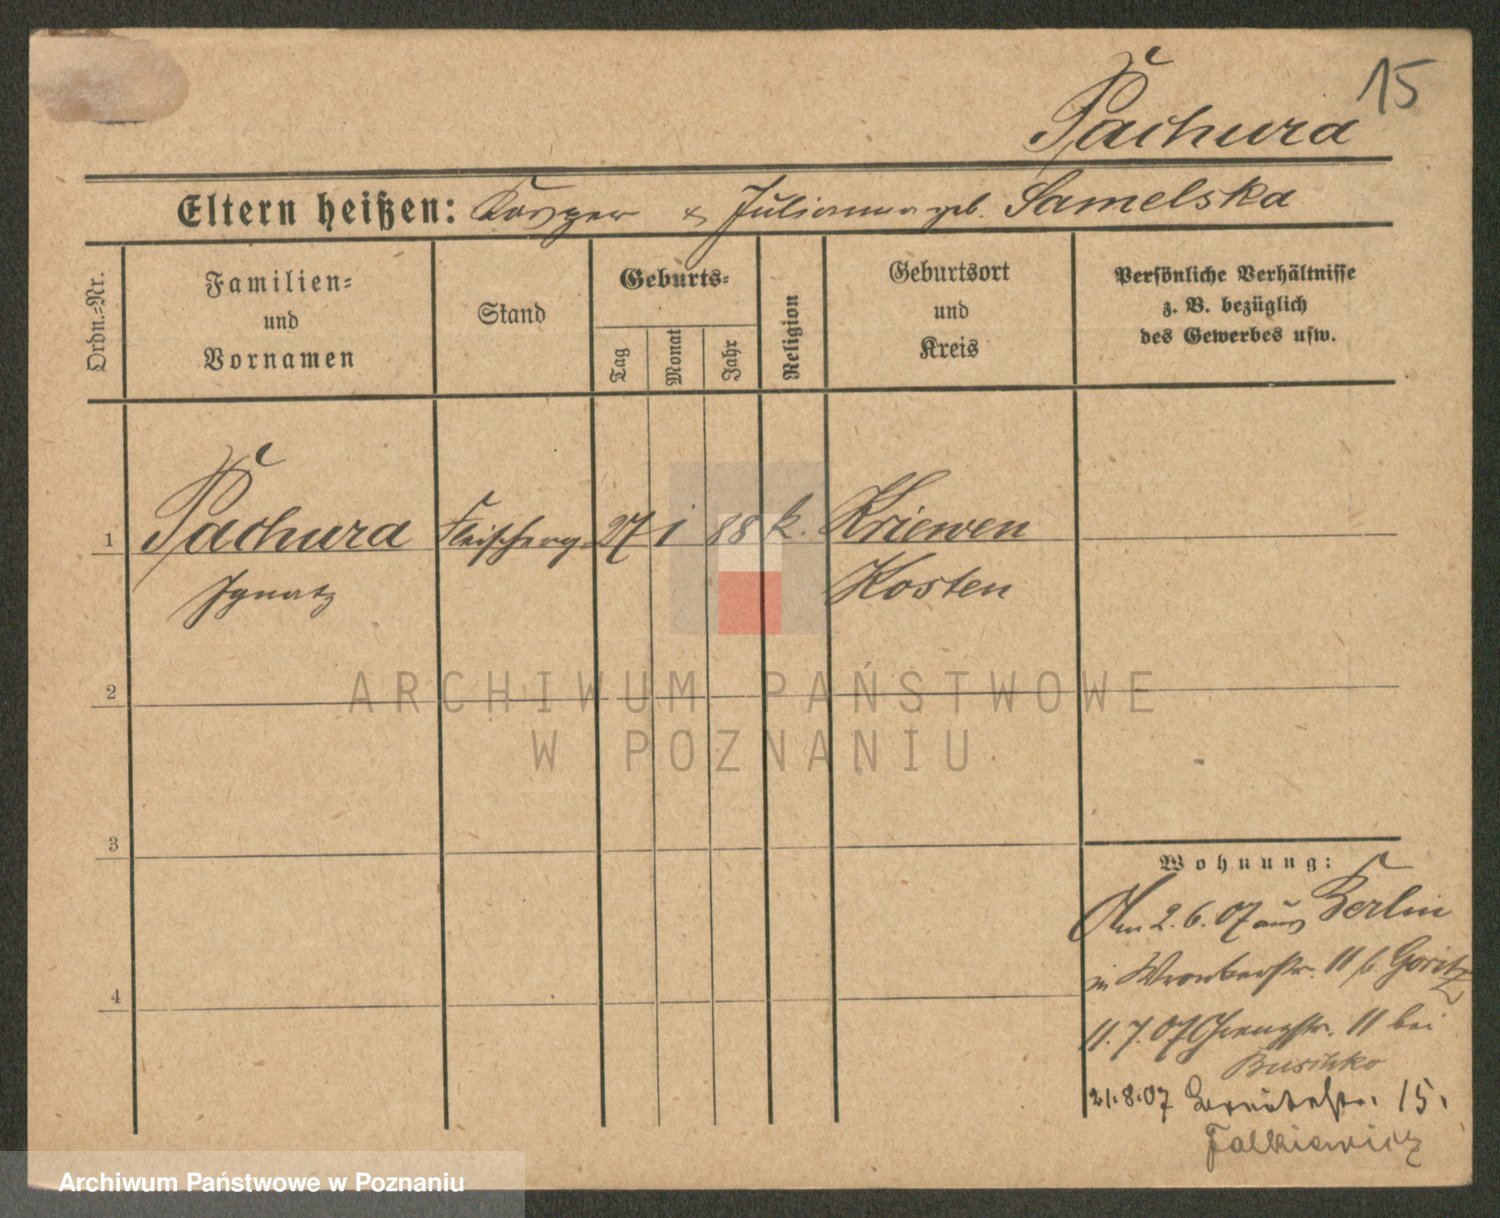 15
Pachura
Eltern heißen: Kasper & Julianna geb. Samelska
Ordn.-Nr.
Familien-
und
Vornamen
Stand
Geburts-
Tag
Monat
Jahr
Religion
Geburtsort
und
Kreis
Persönliche Verhältnisse
z. B. bezüglich
des Gewerbes usw.
1 Pachura Fleischerg. 27 1 88 k. Kriewen
Ignatz Kosten
2
ARCHIWUM PAŃSTWOWE
W POZNANIU
3
4
Wohnung:
Am 2.6.07 aus Berlin
in Wronkerstr. 11 b. Goritz
11.7.07 11 bei
Buschko
21.8.07 15.
Falkiewicz
Archiwum Państwowe w Poznaniu